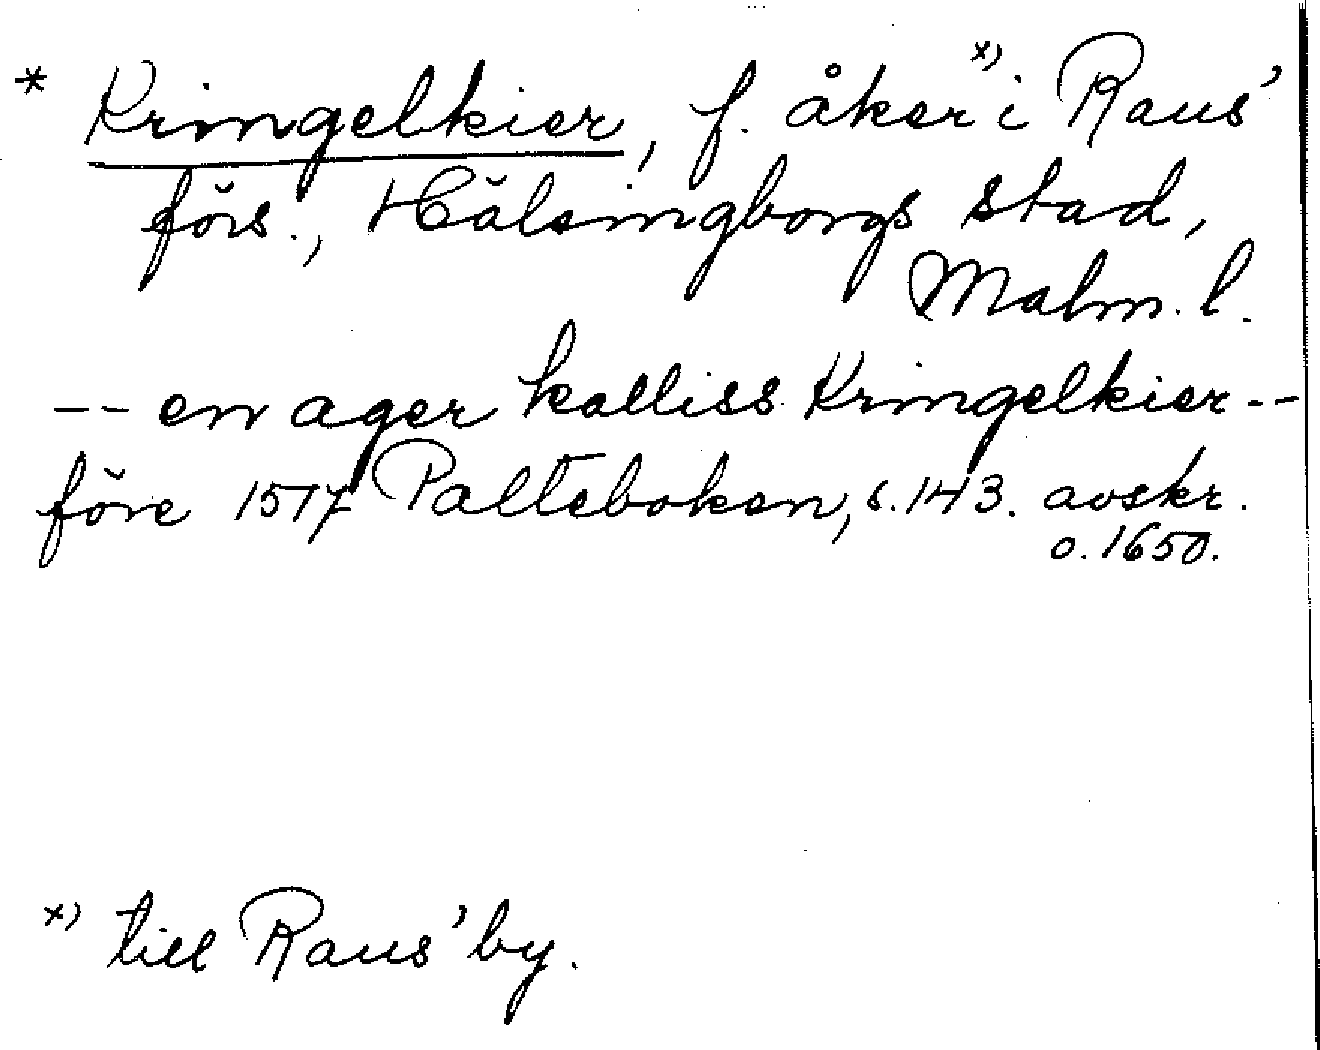 * Kringelkier, f. åker x) i Raus'
förs., Hälsingborgs stad,
Malm. l.
-- en ager kalliss Kringelkier --
före 1517 Palteboken, s. 143. avskr.
o. 1650.
x) till Raus' by.